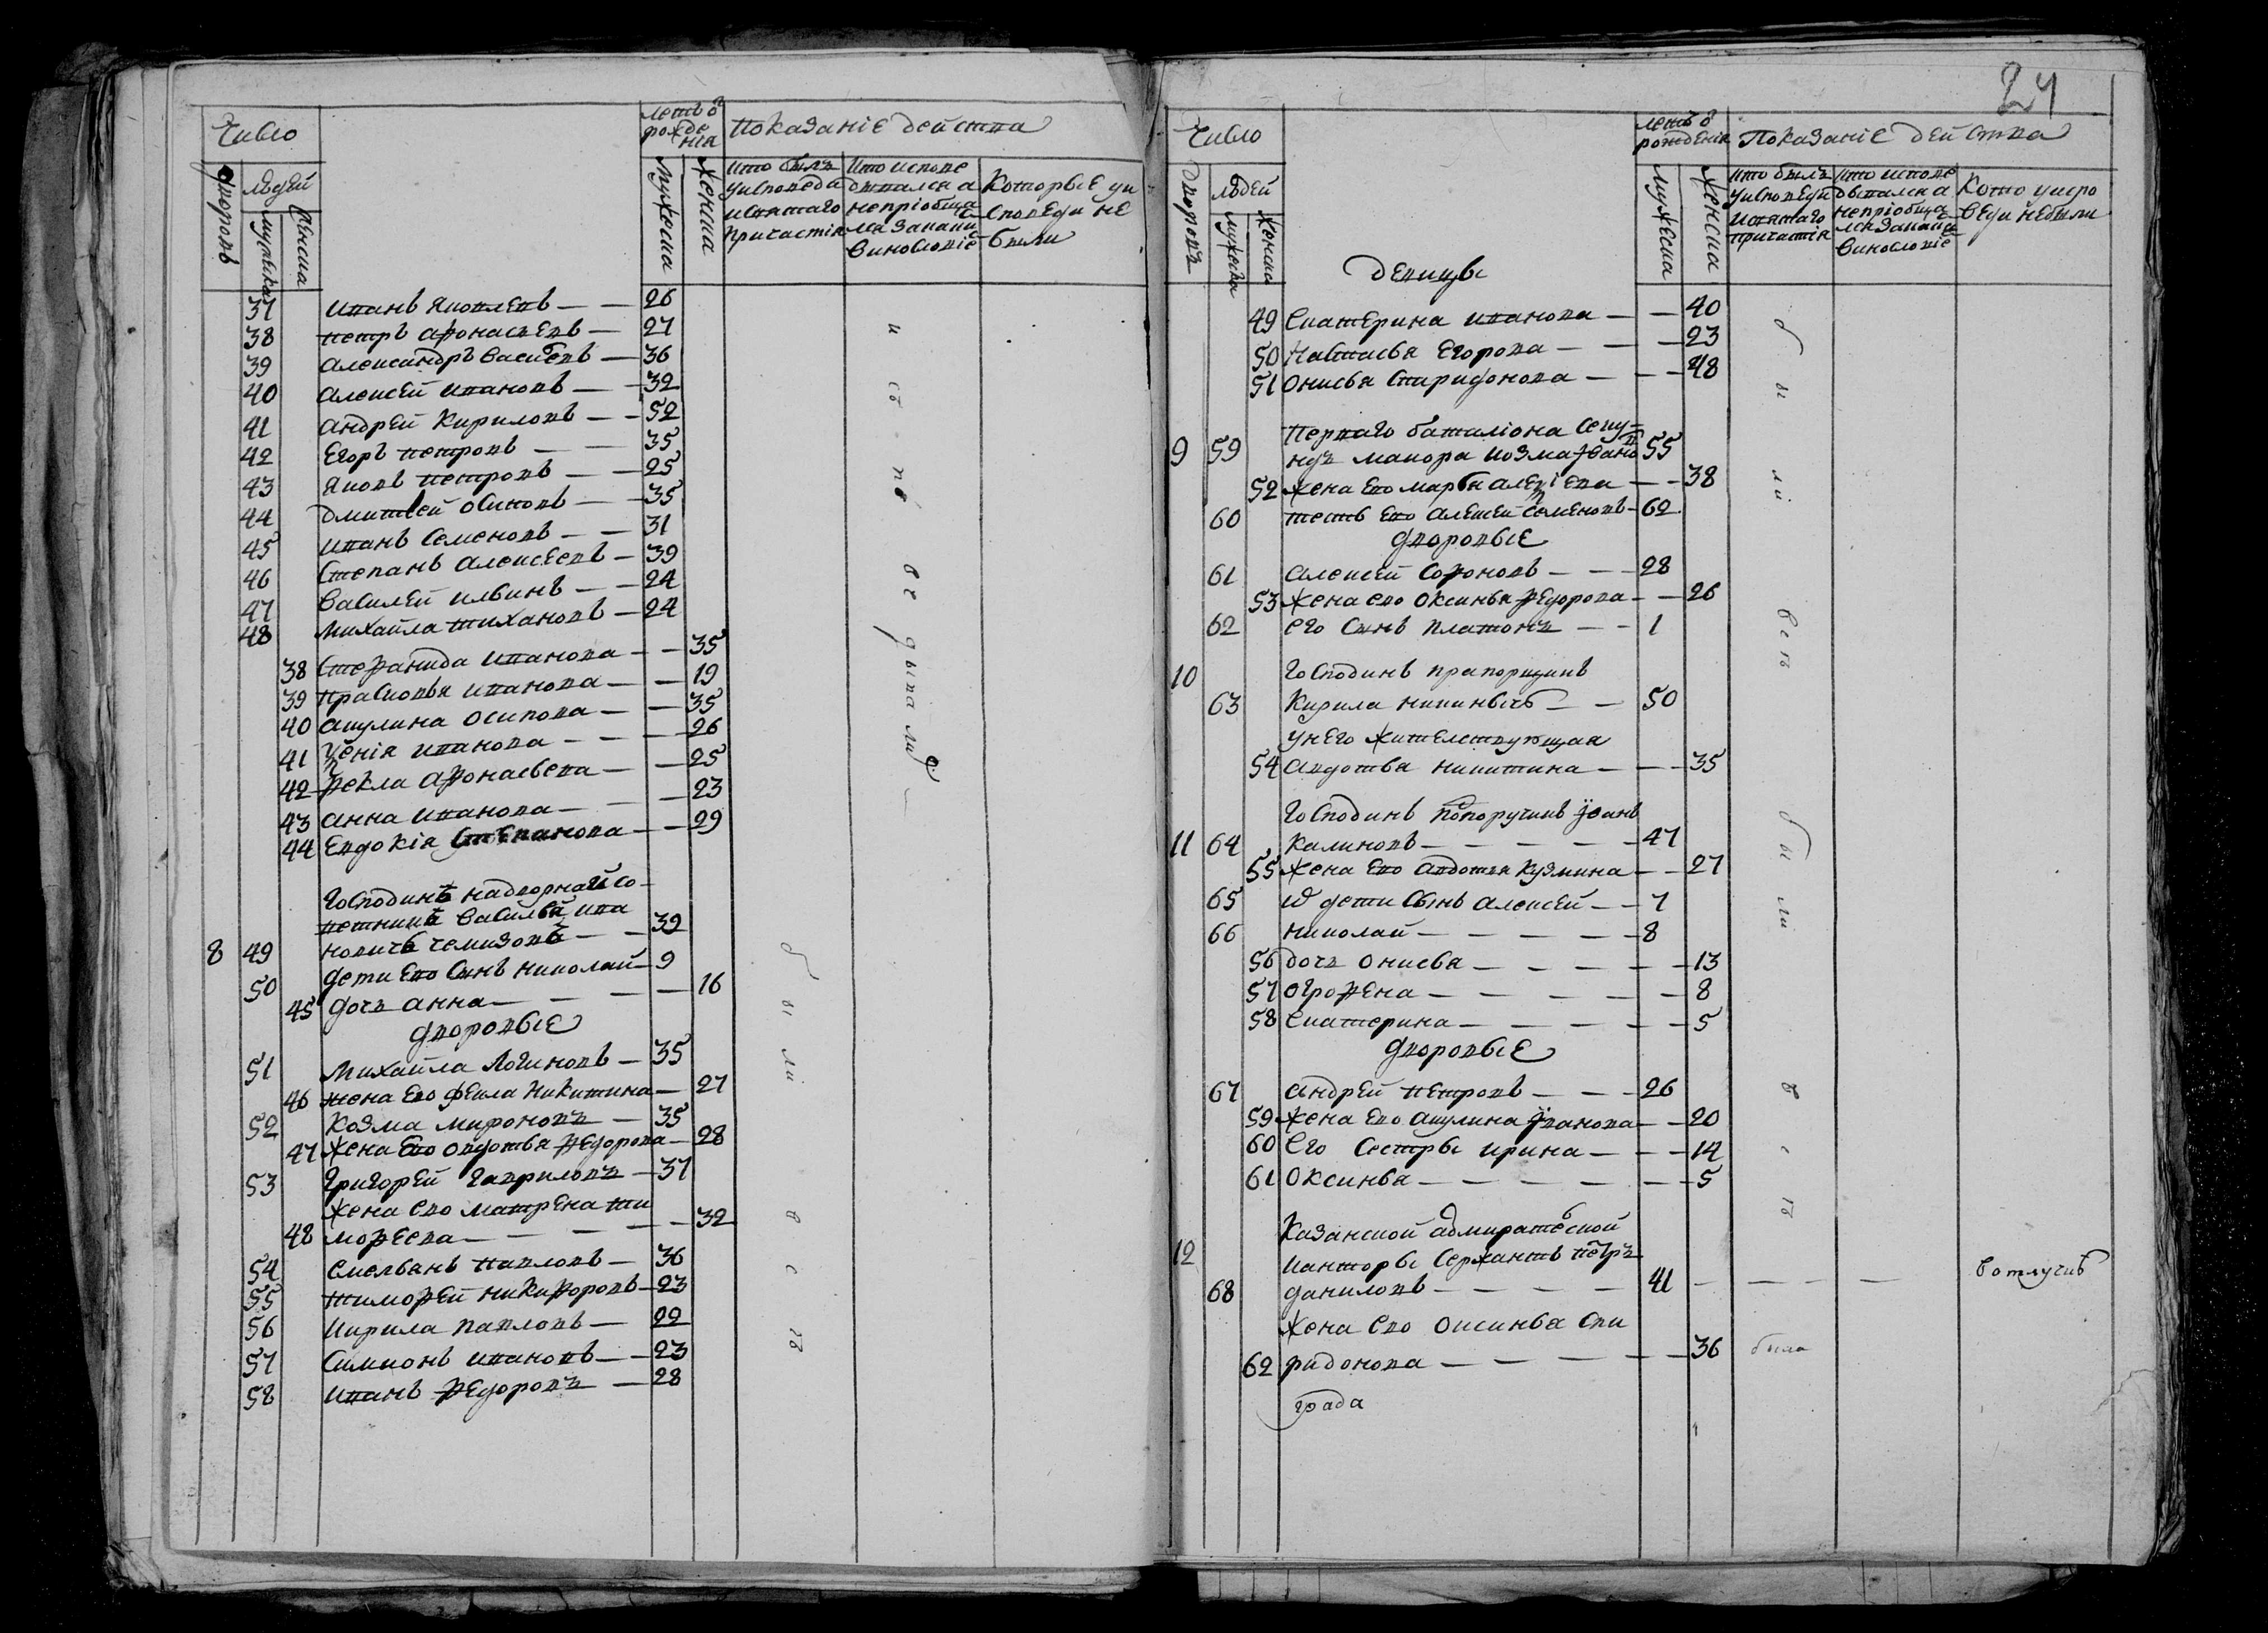 Число
лѣтъ ѿ рожденія
Показаніе действа
дворовъ
людей
мужеска
женска
мужеска
женска
кто былъ у исповеди и святаго причастія
кто исповедывался а непріобщался за каким винословіе
Которые у исповеди не были
37 Иванъ Яковлевъ — — 26
38 петръ афонасъевъ — 27
39 александръ Васильевъ — 36
40 алексей ивановъ — — 32
41 андрей Кириловъ — — 52
42 Егоръ петровъ — — 35
43 Яковъ петровъ — — 25
44 Дмитрей осиповъ — — 35
45 иванъ Семеновъ — — 31
46 Степанъ алексеевъ — 39
47 Василей ильинъ — — 24
48 Михайла тихановъ — 24
38 Стефанида иванова — — 35
39 прасковья иванова — — 19
40 акулина осипова — — 35
41 Ксенія иванова — — — 26
42 фекла афонасьева — — 25
43 анна иванова — — — 23
44 Евдокія Степанова — — 29
исповедывались
Господинъ надворнай со-
ветникъ Василей ива
8 49 новичь чемизовъ — — 39
50 дети Ево Сынъ николай — 9
45 дочь анна — — — — 16
дворовые
51 Михайла Логиновъ — 35
46 жена Ево фекла Никитина — 27
52 Козма мироновъ — 35
47 жена Ево овдотья федорова — 28
53 Григорей гавриловъ — 37
жена Ево матрена ти
48 мофеева — — — — 32
54 Емельянъ павловъ — 36
55 тимофей никифоровъ — 23
56 Кирила павловъ — 22
57 Симионъ ивановъ — — 23
58 иванъ федоровъ — 28
были все
24
Число
лѣтъ ѿ рожденія
Показаніе действа
дворовъ
людей
мужеска
женска
мужеска
женска
кто былъ у исповеди и святаго причастія
кто исповедывался а непріобщался за каким винословіе
Кото у испо веди небыли
девицы
49 Екатерина иванова — — 40
50 Настасья Егорова — — — 23
51 Онисья Спиридонова — — — 48
Перваго баталіона Секу-
9 59 ндъ маиора козма 55
52 жена Ево марфа — — 38
60 тесть Ево алексей Семеновъ — 62
дворовые
61 алексей Софоновъ — — — 28
53 жена ево Оксинья федорова — — 26
62 его Сынъ платонъ — — 1
10 Господинъ прапорщикъ
63 Кирила никиничь — — 50
у него жителствующая
54 авдотья никитина — — — 35
Господинъ Подпоручикъ
11 64 Калиновъ — — — — — 47
55 жена Ево авдотья Кузмина — — 27
65 их дети Сынъ алексей — — 7
66 николай — — — — — 8
56 дочь онисья — — — — — 13
57 огрофена — — — — — — 8
58 Екатерина — — — — — 5
дворовые
67 андрей петровъ — — — 26
59 жена Ево акулина Иванова — — 20
60 его Сестры ирина — — — 14
61 Оксинья — — — — — — 5
были все были все
Казанской адмиралтеской
12 Канторы Сержантъ Петръ
68 даниловъ — — — — 41 — — — — в отлучкѣ
жена Ево оксинья Спи
62 ридонова — — — — — — 36 была
града